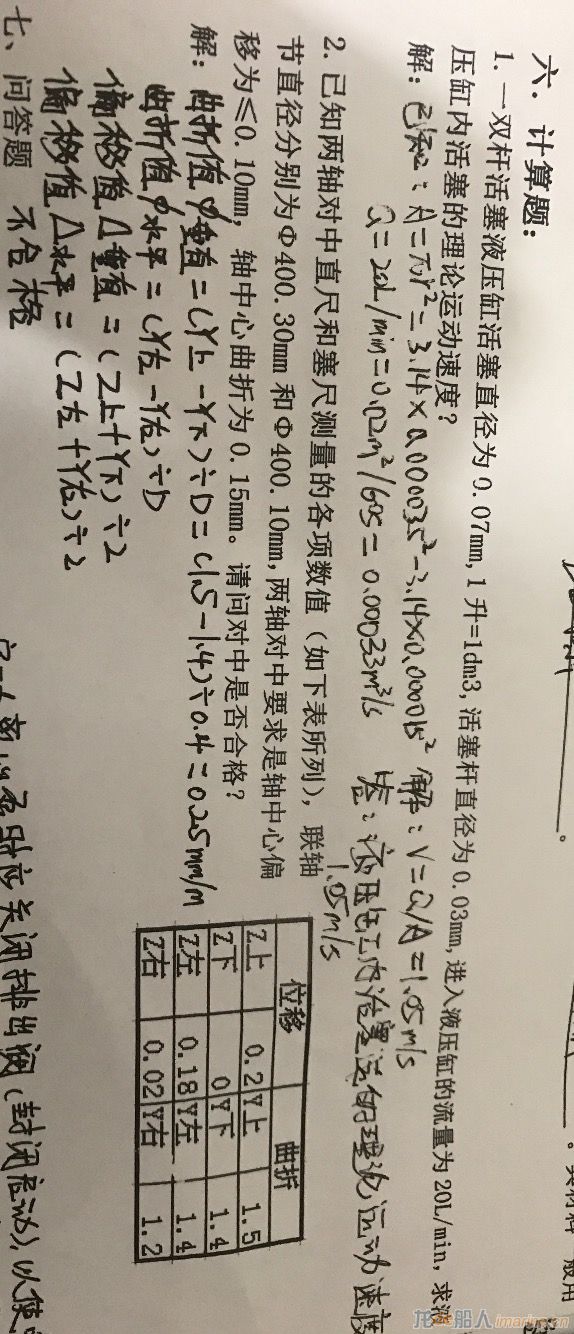 。其材料一般用
六. 计算题:
1. 一双杆活塞液压缸活塞直径为 0.07mm, 1 升=1dm3, 活塞杆直径为 0.03mm, 进入液压缸的流量为 20L/min, 求液
压缸内活塞的理论运动速度?
解: 已知: A=πr²=3.14×0.000035²-3.14×0.000015² 解: V=Q/A=1.05m/s
Q=20L/min=0.02m³/60s=0.00033m³/s 答: 液压缸内活塞运行理论运动速度
1.05m/s
2. 已知两轴对中直尺和塞尺测量的各项数值(如下表所列), 联轴
节直径分别为Φ400.30mm 和Φ400.10mm, 两轴对中要求是轴中心偏
移为≤0.10mm, 轴中心曲折为 0.15mm。请问对中是否合格?
解: 曲折值φ垂直=(Y上-Y下)÷D=(1.5-1.4)÷0.4=0.25mm/m
曲折值φ水平=(Y左-Y右)÷D
偏移值△垂直=(Z上+Y下)÷2
偏移值△水平=(Z左+Y右)÷2
不合格
位移 曲折
Z上 0.2 Y上 1.5
Z下 0 Y下 1.4
Z左 0.18 Y左 1.4
Z右 0.02 Y右 1.2
七、问答题
关闭排出阀(封闭启动), 以使
龙de船人 imarine.cn